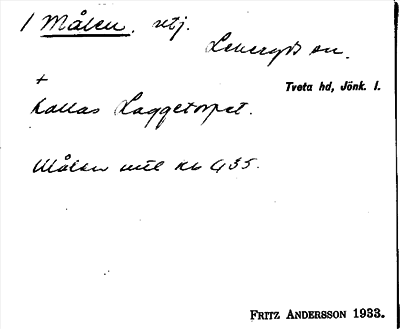 1 Målen, utj.
Lekeryds sn.
Tveta hd, Jönk. l.
+
kallas Laggetorpet.
Målen mtl Kb 435.
FRITZ ANDERSSON 1933.